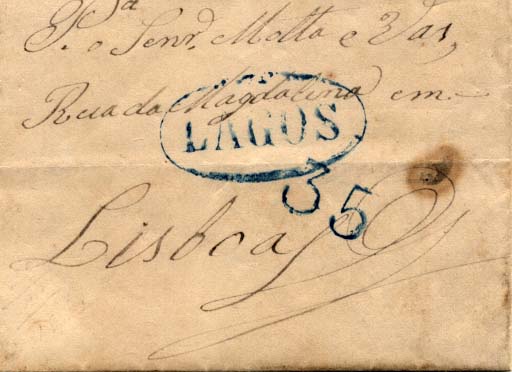 o Senr. Motta e Vas,
Rua da Magdalena em
LAGOS
35
Lisboa